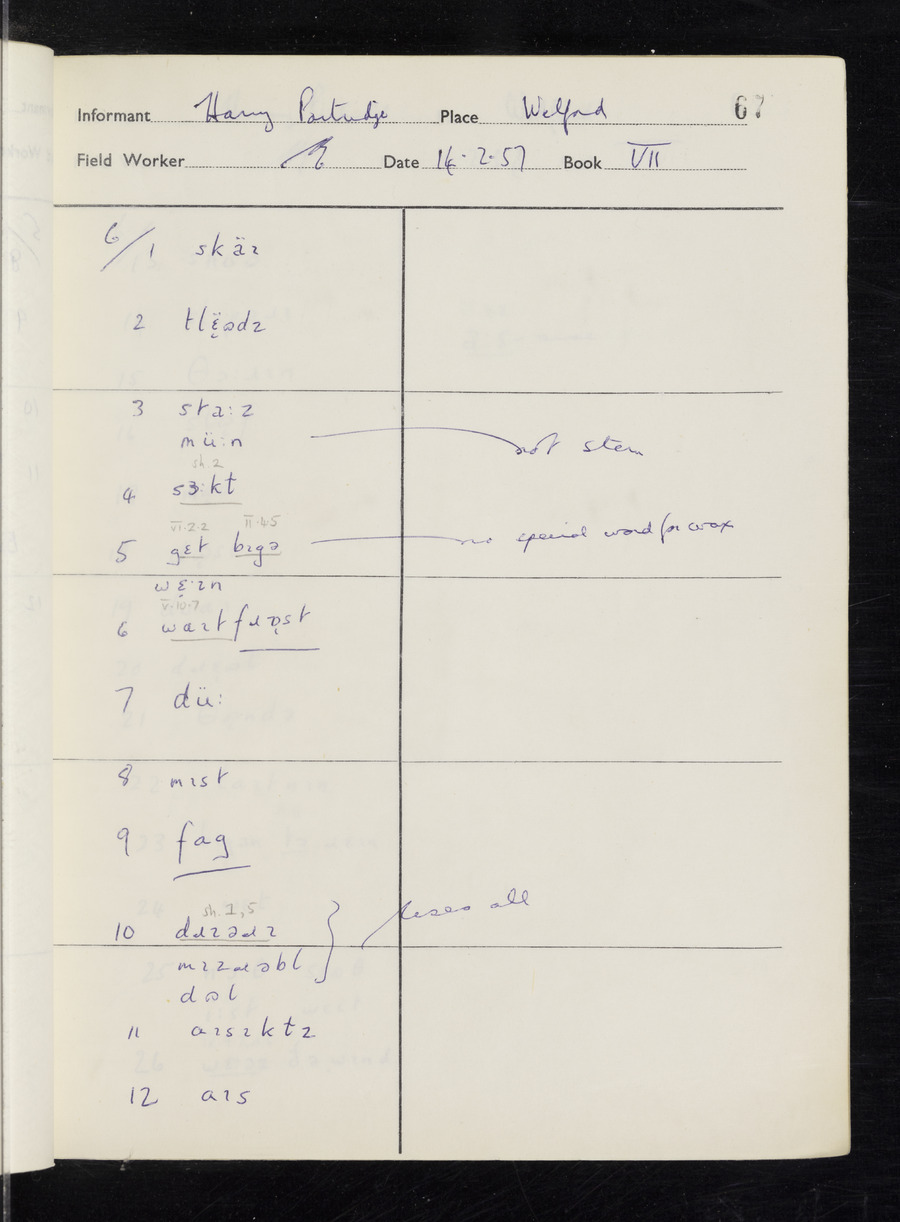 67
Informant Harry Partridge Place Welford
Field Worker Date 14·2·57 Book VII
6/1 skäɪ
2 tlɛ̈ədz
3 sta:z
mü:n not stem
sh. 2
4 sɜ:kt
VI·2·2 II·4·5
5 gɛt bɪgə no special word for wax
wɛ:ɪn
V·10·7
6 waɪtfɹɒst
7 dü:
8 mɪst
9 fag
sh. 1, 5
10 dɹɪəɹɪ } uses all
mɪzɹəbl
dəl
11 aɪsɪktz
12 aɪs